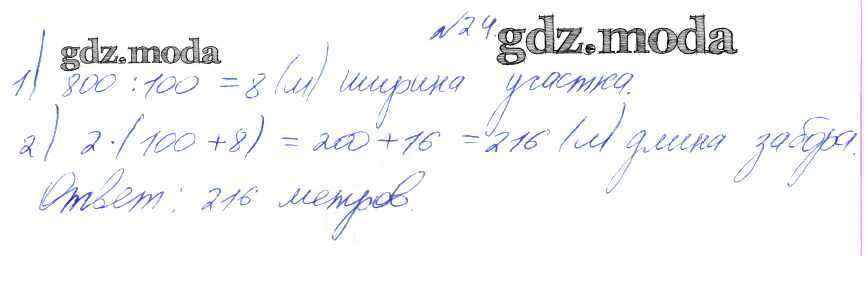 №24. gdz.moda
gdz.moda
1) 800 : 100 = 8 (м) ширина участка.
2) 2·(100 + 8) = 200 + 16 = 216 (м) длина забора.
Ответ: 216 метров.